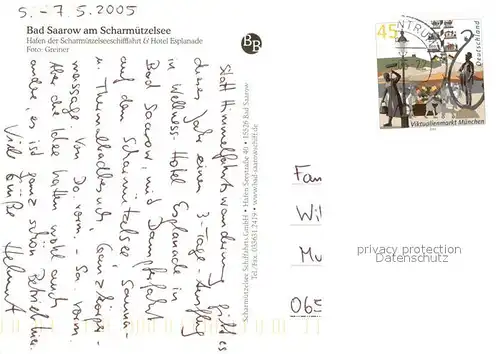 5. - 7.5.2005
Bad Saarow am Scharmützelsee
Hafen der Scharmützelseeschifffahrt & Hotel Esplanade
Foto: Greiner
BB
statt Himmelfahrtswanderung gibt es
dieses Jahr einen 3-Tage-Ausflug
in Wellness-Hotel Esplanade in
Bad Saarow, mit Dampferfahrt
auf dem Scharmützelsee, Sauna-
u. Thermalbadbesuch, Ganzkörper-
massage. Von Do. vorm. - Sa. vorm.
Aber die Idee hatten wohl auch
andre, es ist ganz schön Betrieb hier.
Viele Grüße Helmut
Scharmützelsee Schiffahrts GmbH • Hafen Seestraße 40 • 15526 Bad Saarow
Tel./Fax. 033631 2419 • www.bad-saarowschiff.de
45
Deutschland
Viktualienmarkt München
Fam
Wil
Mu
065
privacy protection
Datenschutz